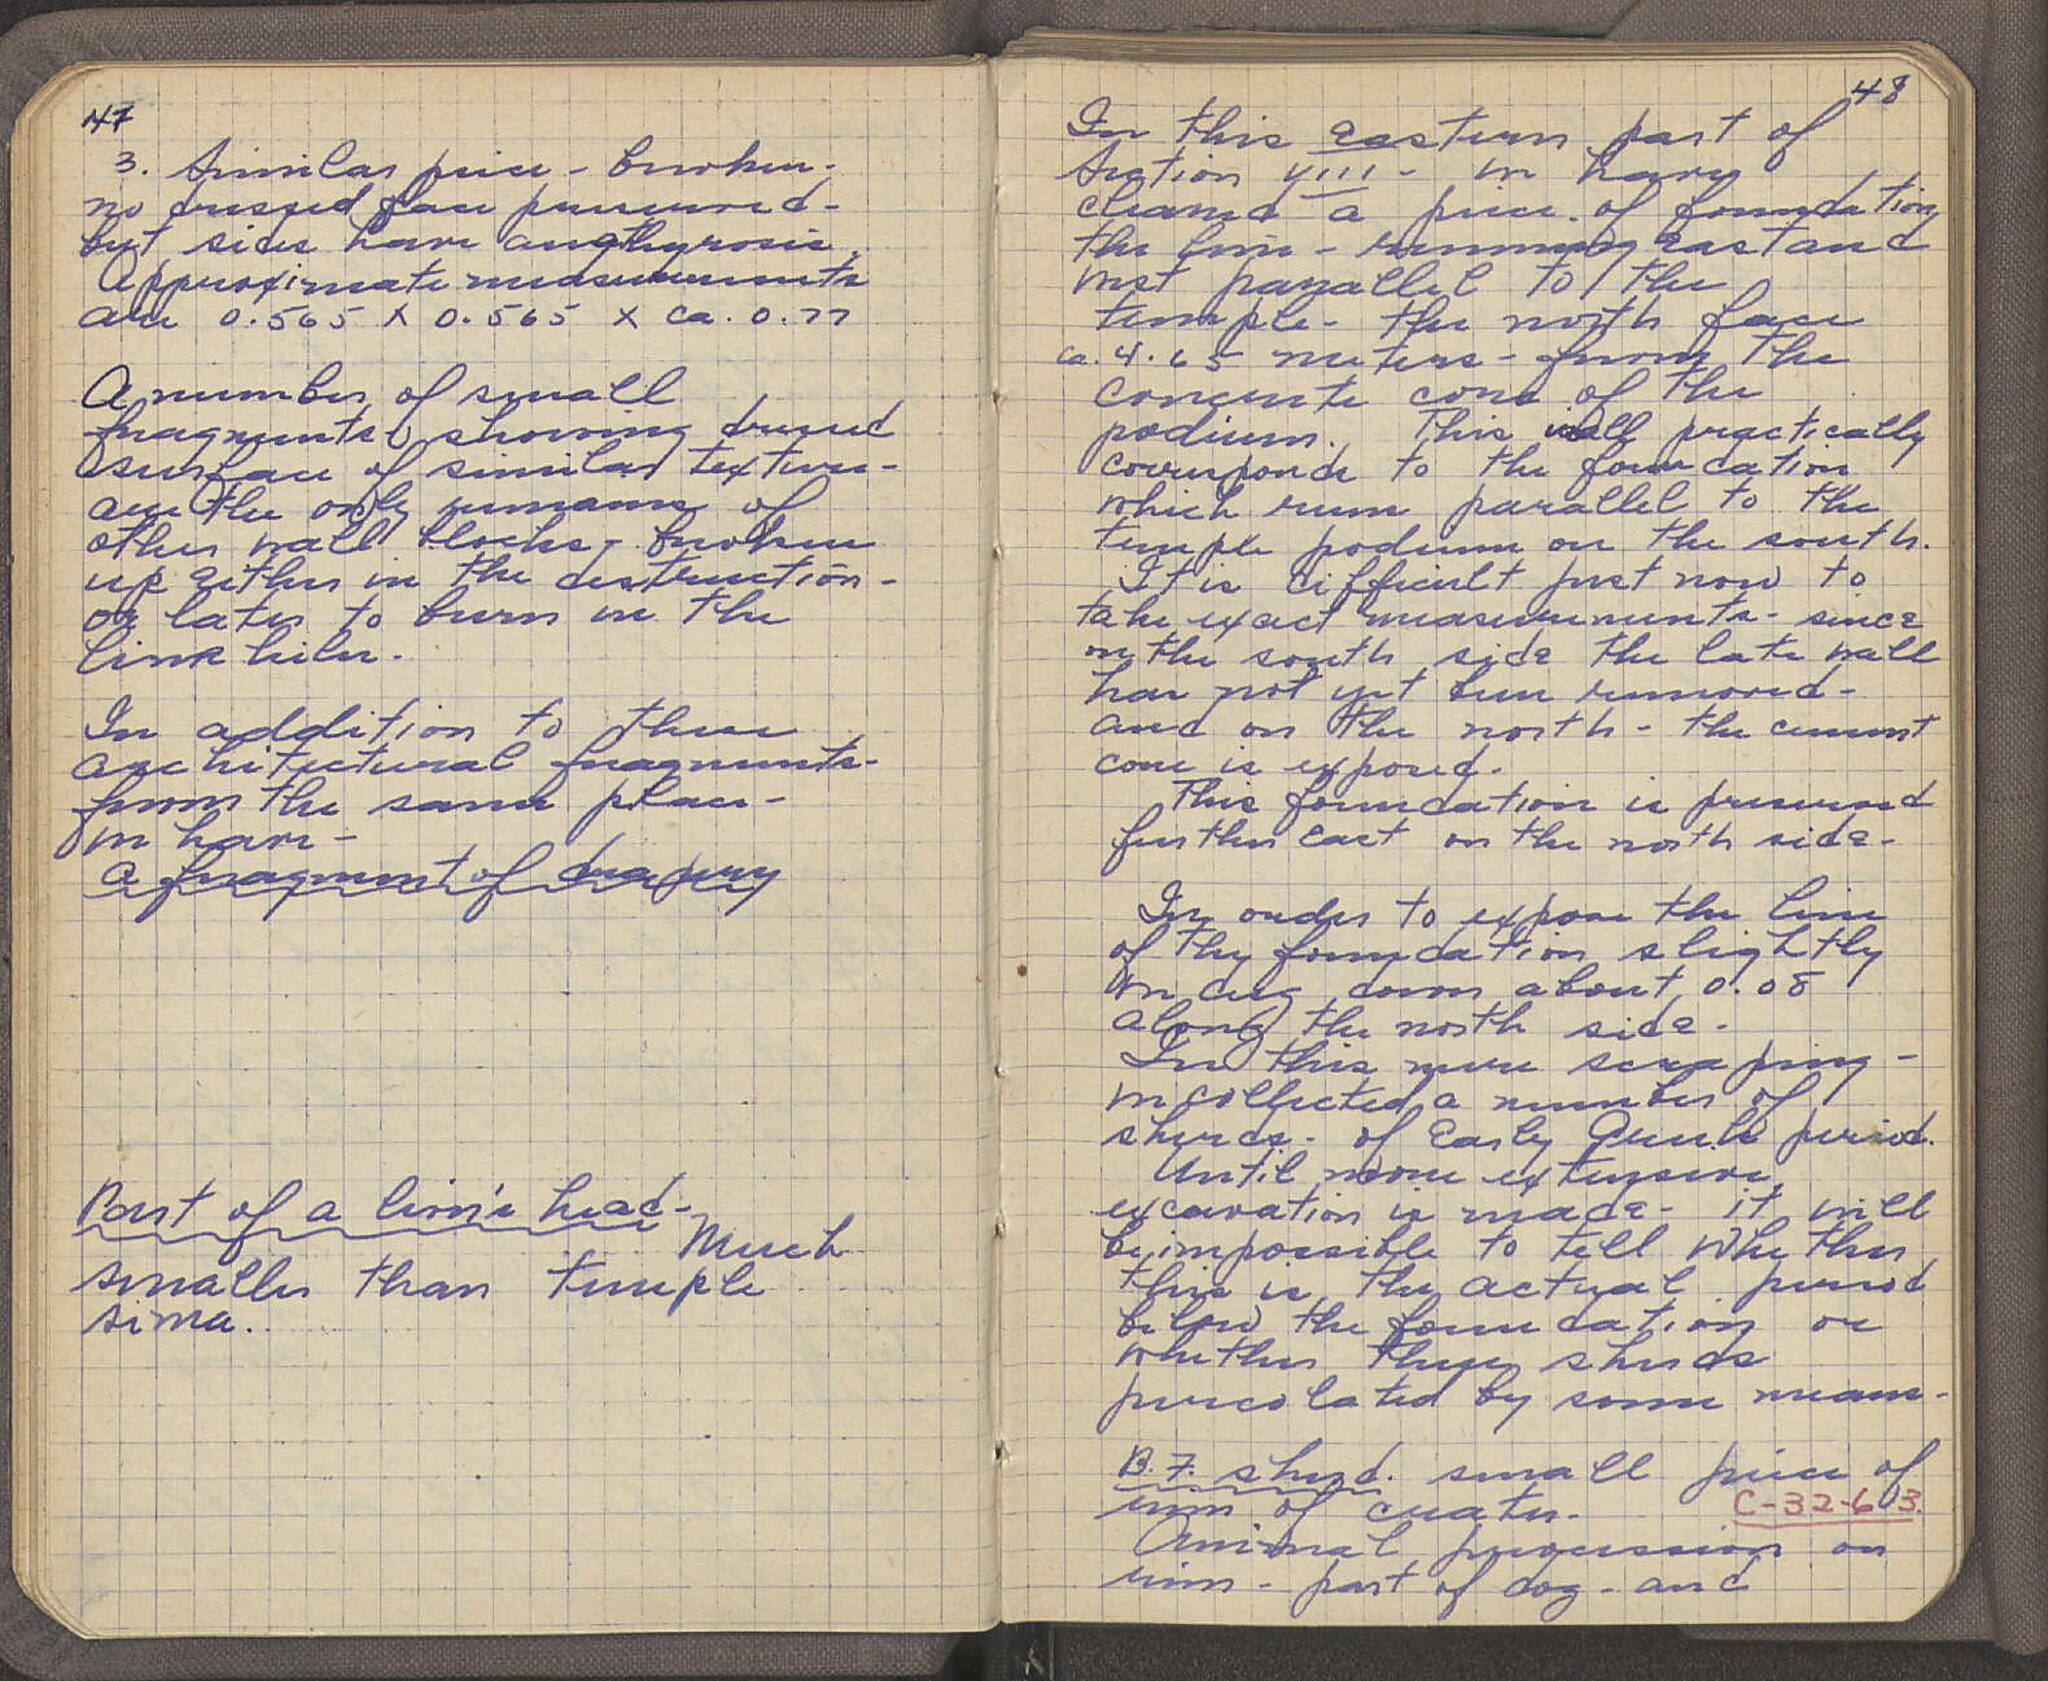 47
3. Similar piece - broken.
no dressed face preserved -
but sides have anathyrosis.
Approximate measurements
are 0.565 x 0.565 x ca. 0.77
A number of small
fragments showing dressed
surface of similar texture -
are the only remains of
other wall blocks - broken
up either in the destruction -
or later to burn in the
lime kiln.
In addition to these
architectural fragments -
from the same place -
we have -
a fragment of drapery
Part of a lion's head -
Much
smaller than temple
sima.
48
In this eastern part of
Section VIII - we have
cleared a piece of foundation
the line - running east and
west parallel to the
temple - the north face
ca. 4.65 meters - from the
concrete core of the
podium. This wall practically
corresponds to the foundation
which runs parallel to the
temple podium on the south.
It is difficult just now to
take exact measurements - since
on the south side the late wall
has not yet been removed -
and on the north - the cement
core is exposed.
This foundation is preserved
further east on the north side -
In order to expose the line
of the foundation slightly
we dug down about 0.08
along the north side.
In this mere scraping -
we collected a number of
sherds - of Early Greek period.
Until more extensive
excavation is made - it will
be impossible to tell whether
this is the actual period
below the foundation or
whether these sherds
percolated by some means -
B.7. sherd. small piece of
rim of crater.
C-32-63.
Animal procession on
rim - part of dog - and